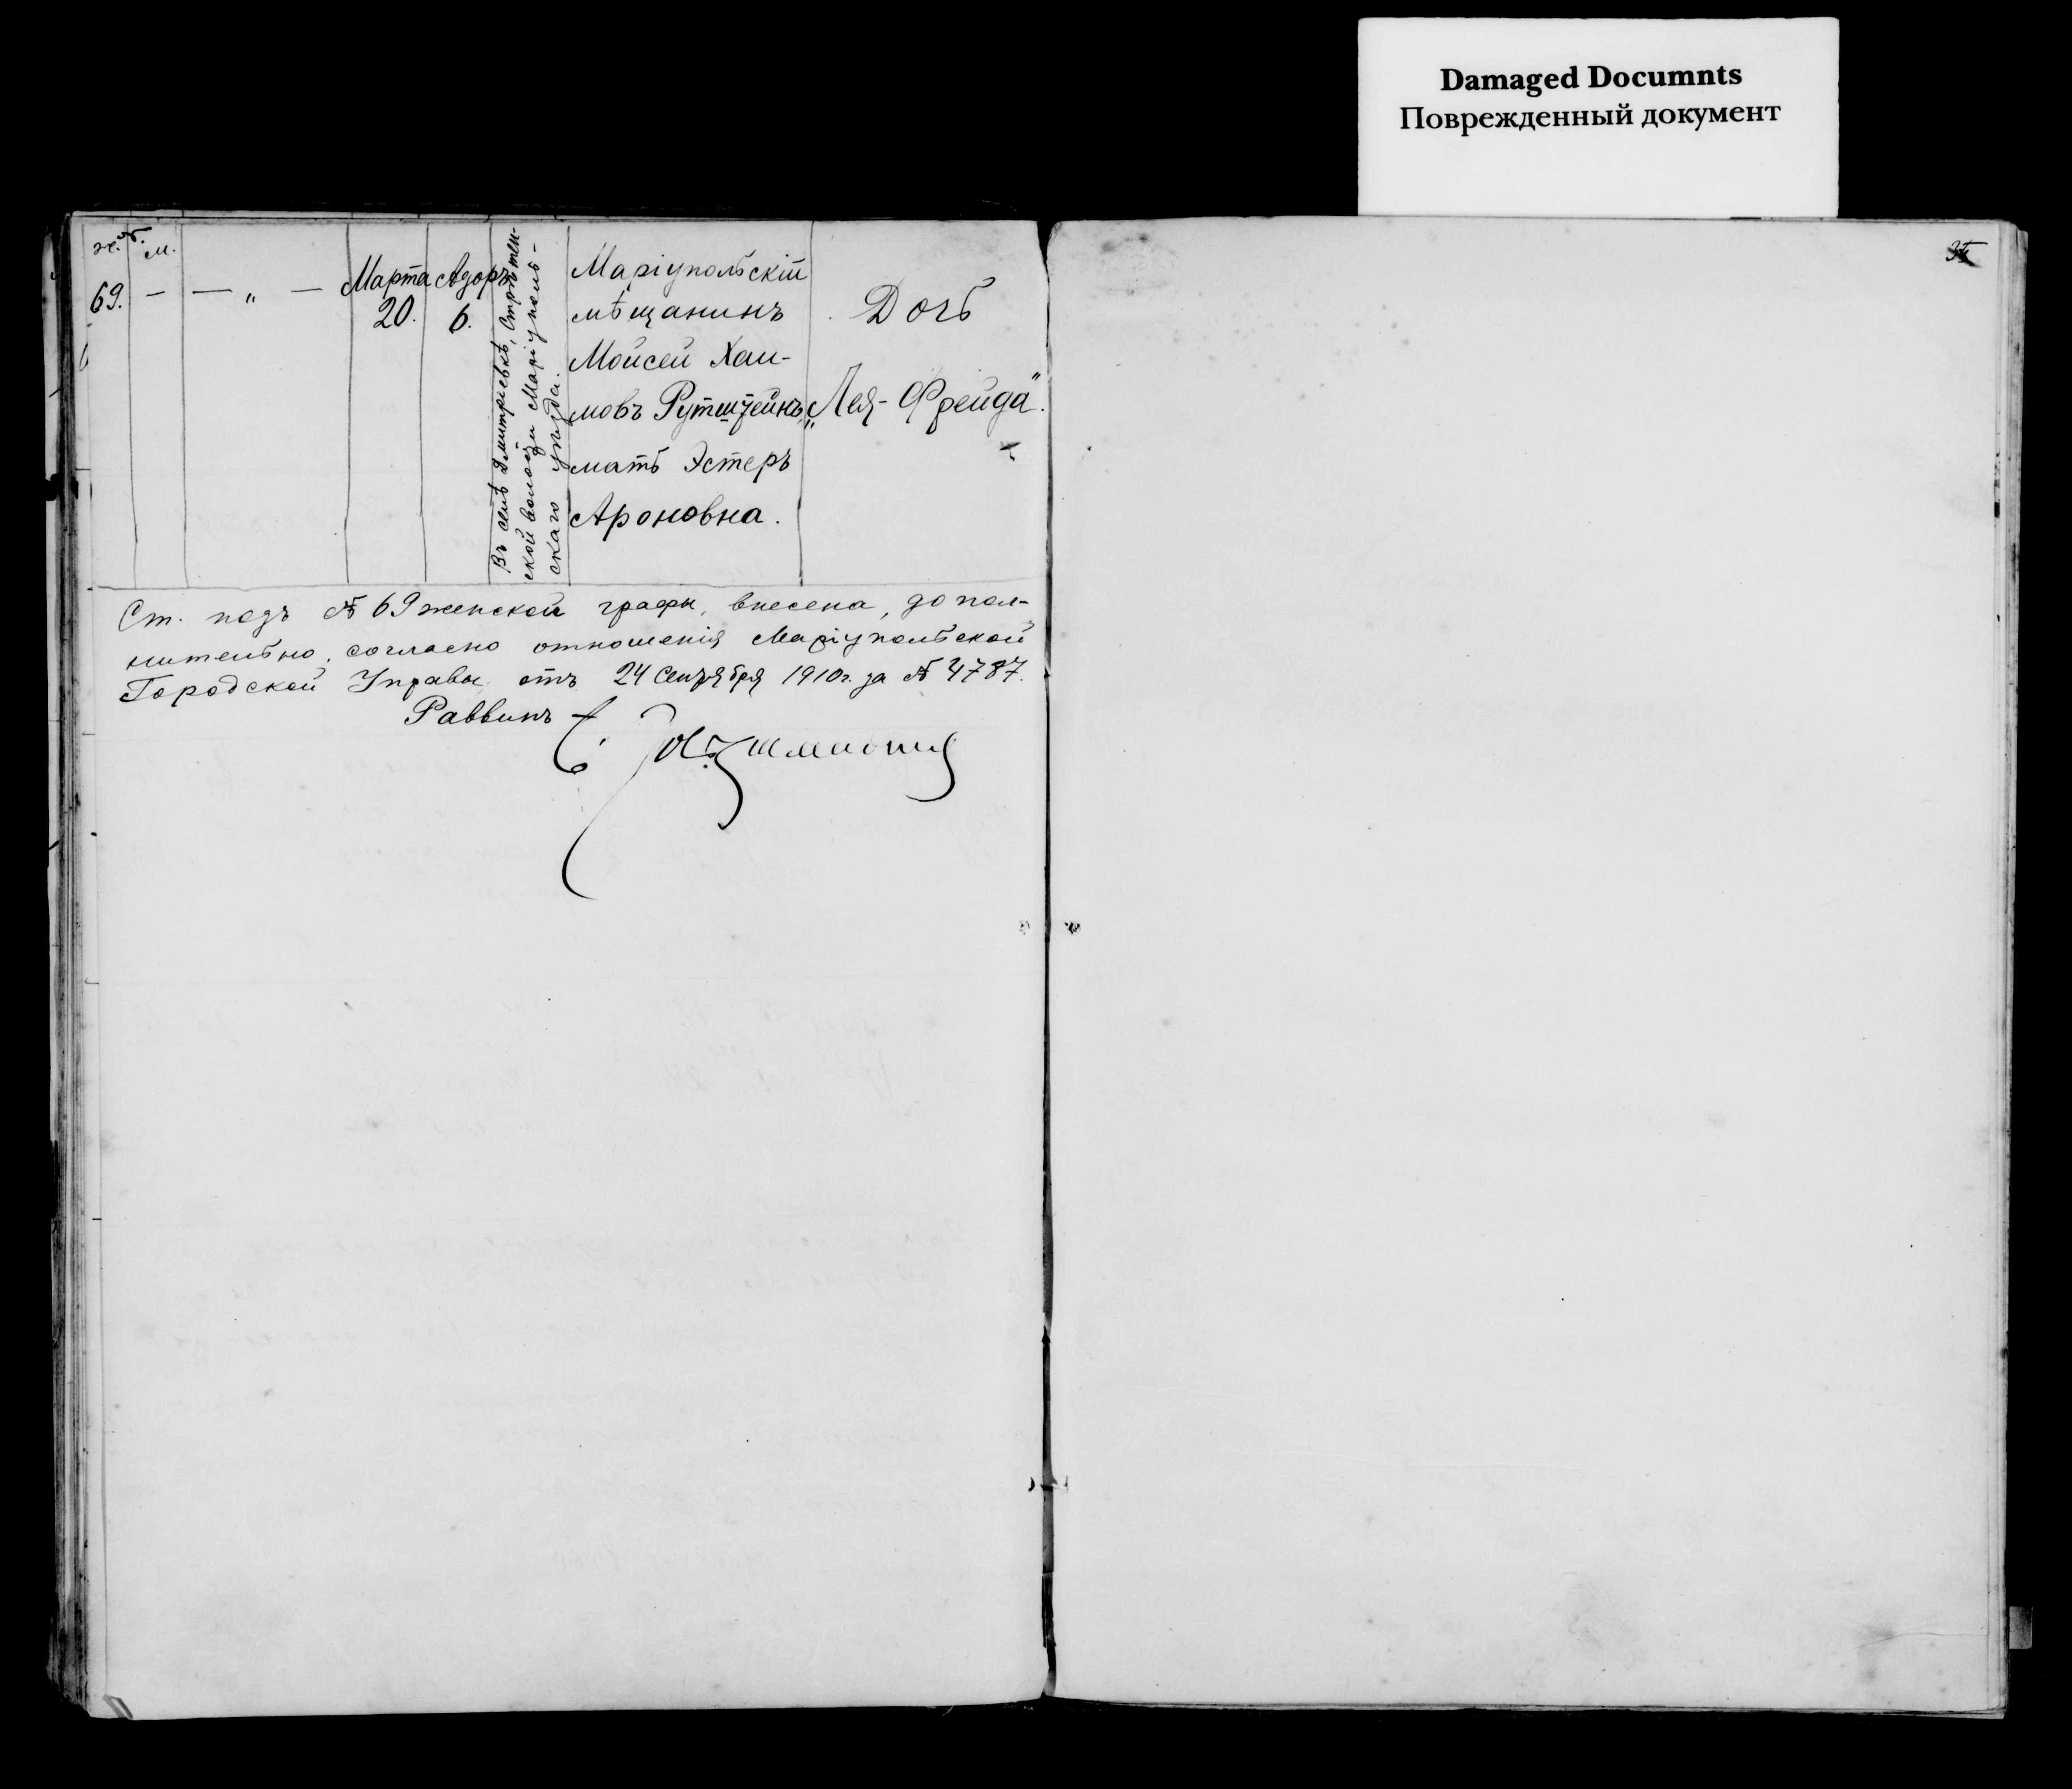 Damaged Documnts
Поврежденный документ
ж. №. м.
69. — — „ —
Марта
20.
Адоръ
6.
Въ селѣ Дмитріевкѣ, Стрѣтен-
ской волости Маріуполь-
скаго уѣзда.
Маріупольскій
мѣщанинъ
Мойсей Хаи-
мовъ Рутштейнъ,
мать Эстеръ
Ароновна.
Дочь
„Лея-Фрейда“.
Ст. подъ № 69 женской графы, внесена, допол-
нительно, согласно отношенія Маріупольской
Городской Управы, отъ 24 Сентября 1910 г. за № 4787.
Раввинъ